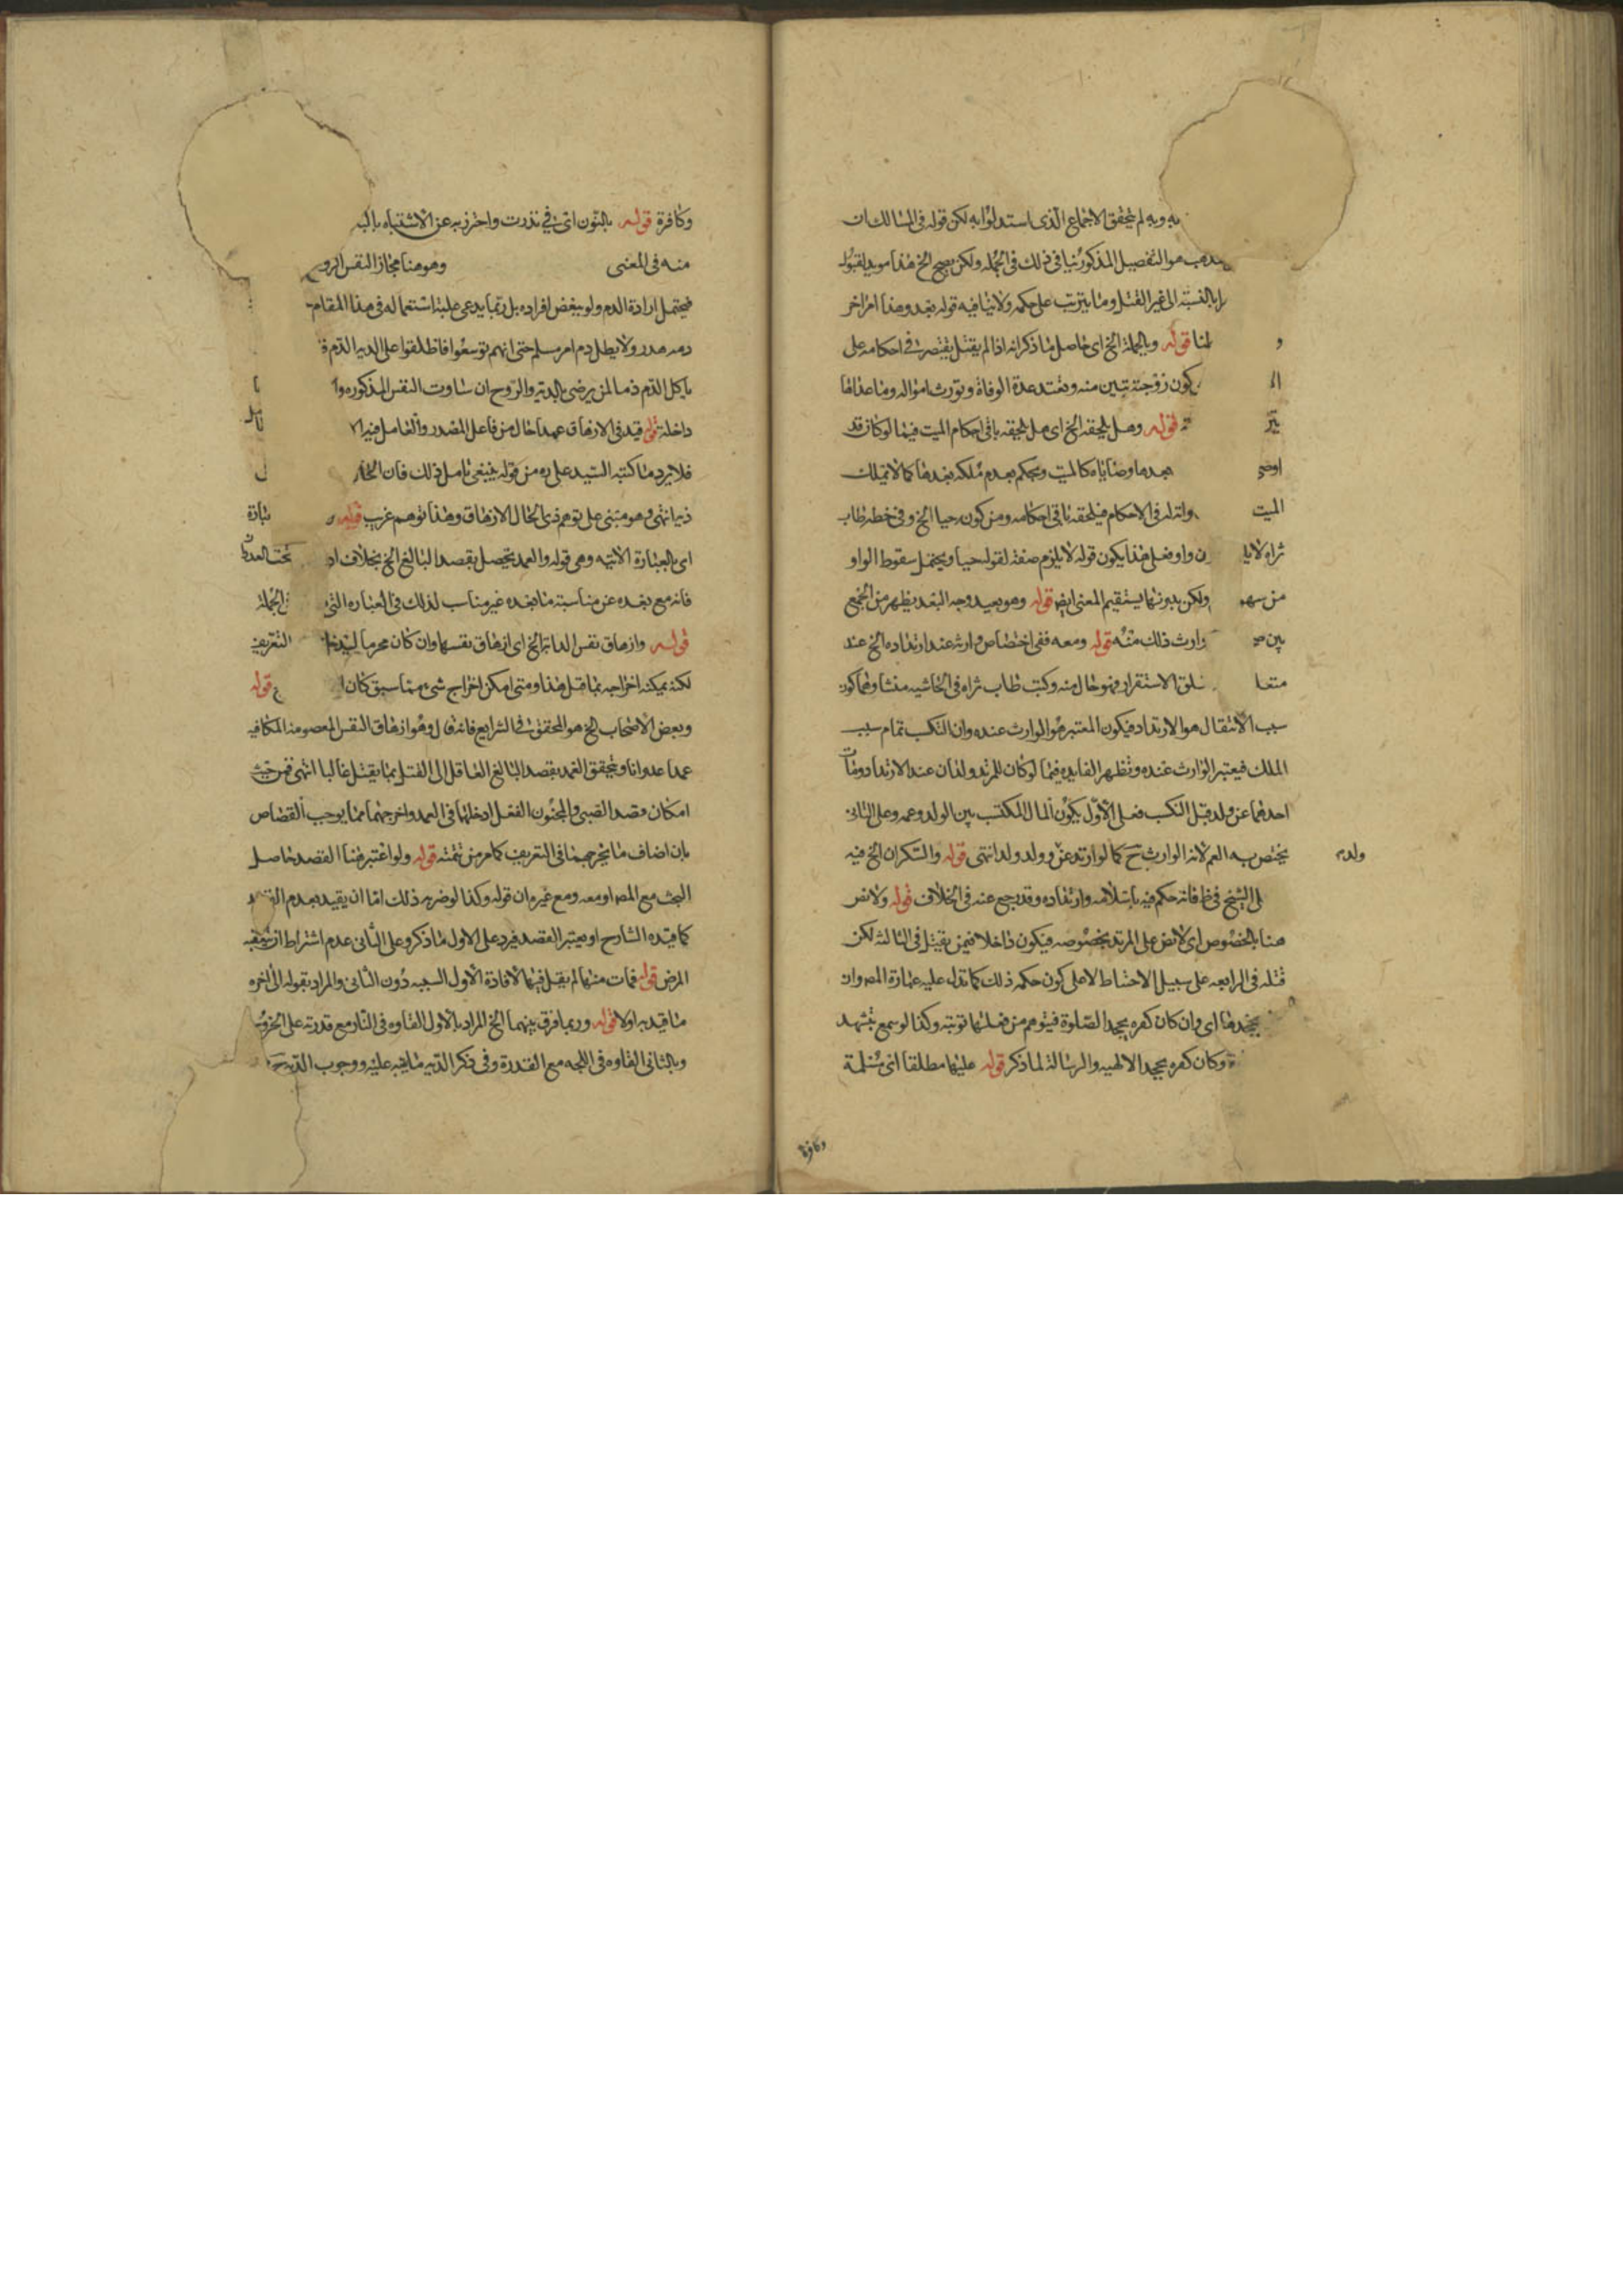 به وبه لم يتحقق الاجماع الذى استدلوا به لكن قوله فى المسالك ان
هو التفصيل المذكور ينافى ذلك فى الجمله ولكن يصح الخ هذا مويد لقبول
بالنسبة الى غير القتل وما يترتب على حكمه ولا ينافيه قوله بعد وهذا امر اخر
و لنا قوله وبالجملة الخ اى حاصل ما ذكر انه اذا لم يقتل يقتصر فى احكامه على
كون زوجته تبين منه وتعتد عدة الوفاة وتورث امواله وما عداها
قوله وهل يلحقه الخ اى هل يلحقه باقى احكام الميت فيما لو كان قد
اوصى بعدها وصاياه كالميت ويحكم بعدم ملكه بعدها كما لا يملك
الميت وانه له فى الاحكام فيلحقه باقى احكامه ومن كونه حيا الخ وفى خطه طاب
ثراه لا يلز ن واو فعلى هذا يكون قوله لا يلزم صفة لقوله حيا ويحتمل سقوط الواو
من سهو ولكن بدونها يستقيم المعنى ايض قوله وهو بعيد وجه البعد يظهر من الجمع
بين وارث ذلك منه قوله ومعه ففى اختصاص وارثه عند ارتداده الخ عند
متعلق الاستقرار فهو حال منه وكتب طاب ثراه فى الحاشيه منشاوهما كون
سبب الانتقال هو الارتداد فيكون المعتبر هو الوارث عنده وان التكسب تمام سبب
الملك فيعتبر الوارث عنده وتظهر الفايده فيما لو كان للمرتد ولدان عند الارتداد ومات
احدهما عن ولد قبل التكسب فعلى الاول يكون المال المكتسب بين الولد وعمه وعلى الثانى
يختص به العم لانه الوارث ح كما لو ارتد عن وولد ولد انتهى قوله والسكران الخ فيه
ولده
الشيخ فى ط فانه حكم فيه باسلامه وارتداده وقد رجع عنه فى الخلاف قوله ولا نص
هنا بالخصوص اى لا نص على المرتد بخصوصه فيكون داخلا فيمن يقتل فى الثالثة لكن
قتله فى الرابعه على سبيل الاحتياط لا على كون حكمه ذلك كما تدل عليه عبارة المص وان
يجحدها اى وان كان كفره بجحد الصلوة فيتوهم من فعلها توبته وكذا لو سمع تشهد
وكان كفره بجحد الالهيه والرسالة لما ذكر قوله عليها مطلقا اى مسلمة
وكافرة
وكافرة قوله بالنون اى فى نذرت واحترز به عن الاشتباه بالب
منه فى المعنى وهو هنا مجاز النفس الروح
فيحتمل ارادة الدم ولو ببعض افراده بل ربما يدعى غلبة استعماله فى هذا المقام
دمه هدر ولا يطل دم امر مسلم حتى انهم توسعوا فاطلقوا على الدية الدم
ياكل الدم ذما لمن يرضى بالدية والروح ان ساوت النفس المذكوره
داخلة قوله قيد فى الازهاق عمدا حال من فاعل المصدر والعامل فيه
فلا يرد ما كتبه السيد على ره من قوله ينبغى تامل ذلك فان
انتهى وهو مبنى على توهم ذى الحال الازهاق وهذا توهم غريب قوله
اى بالعبارة الاتيه وهى قوله والعمد يحصل بقصد البالغ الخ بخلاف
فانه مع بعده عن مناسبة ما بعده غير مناسب لذلك فى العباره التى الجملة
قوله وازهاق نفس الدابة الخ اى ازهاق نفسها وان كان محرما التعريف
لكنه يمكنه اخراجه بما قبل هذا ومتى امكن اخراج شىء مما سبق كان قوله
وبعض الاصحاب الخ هو المحقق فى الشرايع فانه قال وهو ازهاق النفس المعصومة المكافيه
عمدا عدوانا ويتحقق العمد بقصد البالغ العاقل الى القتل بما يقتل غالبا انتهى فمن حيث
امكان قصد الصبى والمجنون الفعل ادخلهما فى العمد واخرجهما مما يوجب القصاص
بان اضاف ما يخرجهما فى التعريف كما مر من تتمته قوله ولو اعتبر هنا القصد حاصل
البحث مع المص او معه ومع غيره ان قوله وكذا لو ضربه ذلك اما ان يقيد بعدم القصد
كما قيده الشارح او يعتبر القصد فيرد على الاول ما ذكر وعلى الثانى عدم اشتراط ان يتعقبه
المرض قوله فمات منها لم يقل فيها لافادة الاول السببيه دون الثانى والمراد بقوله الى اخره
ما قيد به اولا قوله وربما فرق بينهما الخ المراد بالاول القاوه فى النار مع قدرته على الخروج
وبالثانى القاوه فى اللجه مع القدرة وفى ذكر الدية ما ينبه عليه ووجوب الدية ح